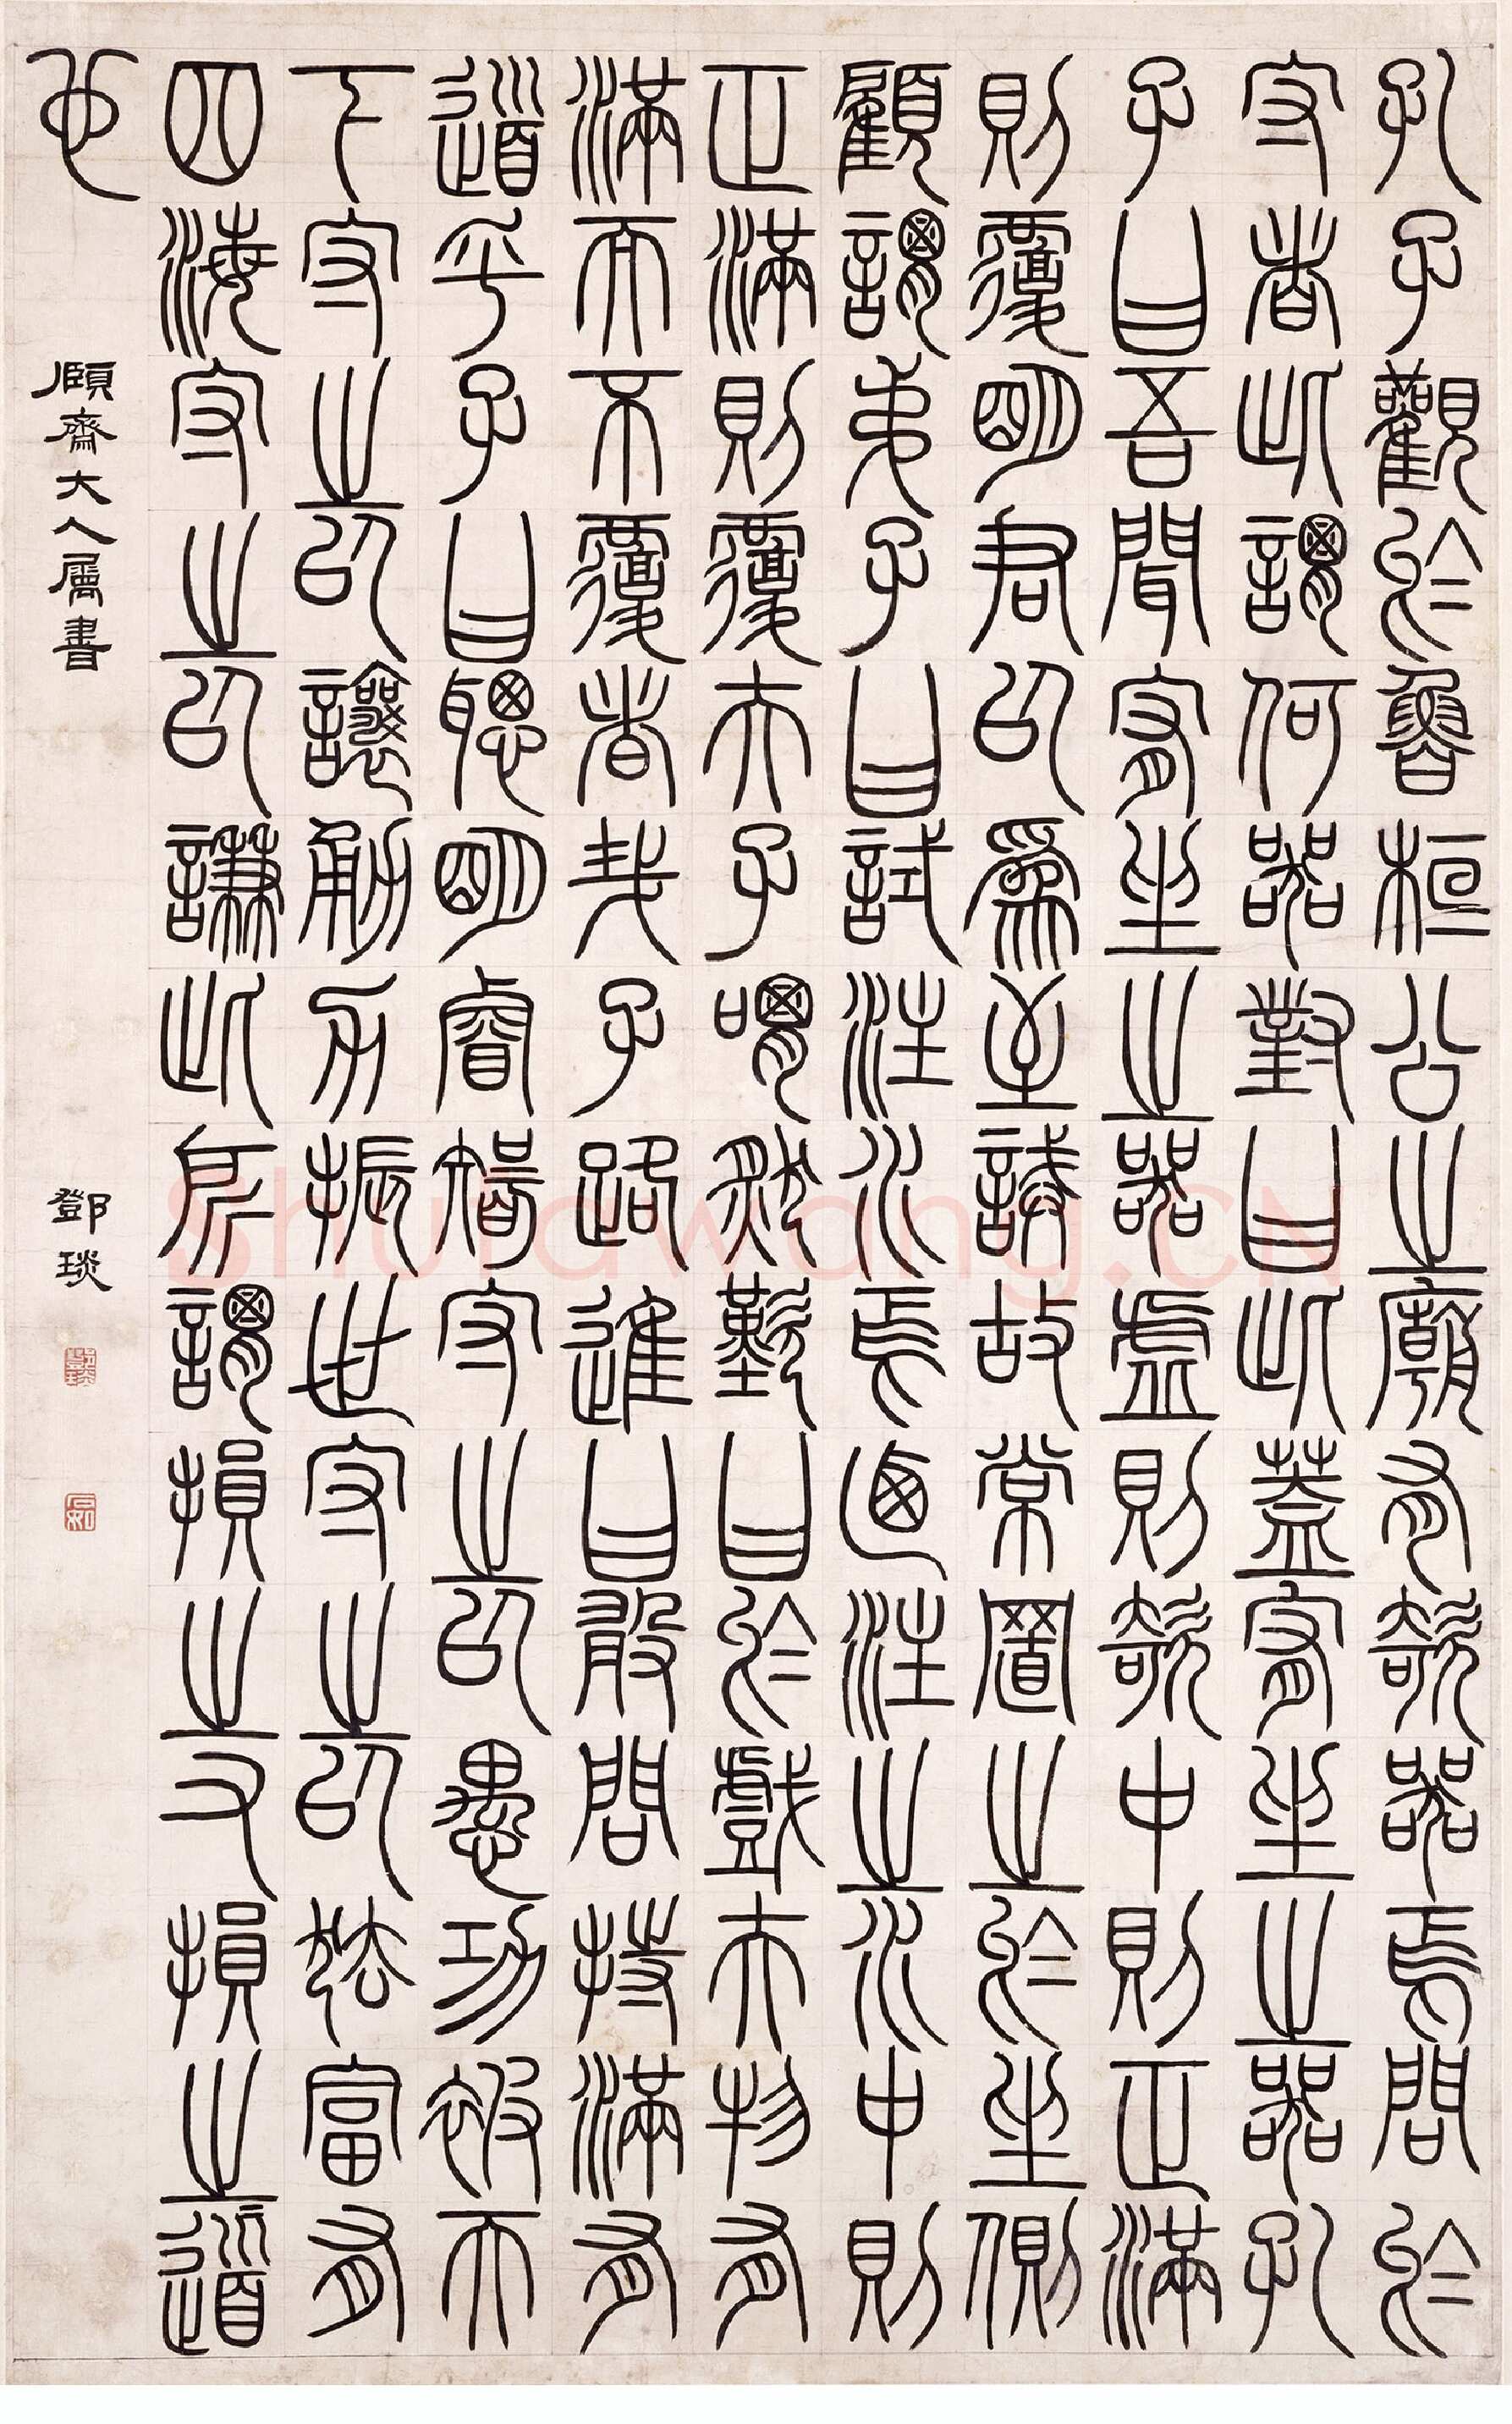 孔子觀於魯桓公之廟有欹器焉問於
守者此謂何器對曰此蓋宥坐之器孔
子曰吾聞宥坐之器虛則欹中則正滿
則覆明君以為至誡故常置之於坐側
顧謂弟子曰試注水焉迺注之水中則
正滿則覆夫子喟然歎曰於戲夫物有
滿而不覆者哉子路進曰敢問持滿有
道乎子曰聰明睿智守之以愚功被天
下守之以讓勇力振世守之以怯富有
四海守之以謙此所謂損之又損之道
也
頤齋大人屬書
鄧琰
鄧琰
石如
Shufawang.CN